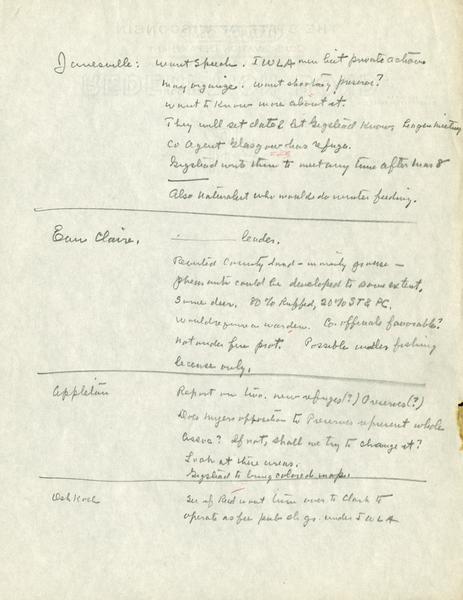 Janesville: Want Speech. IWLA men but private actions
may organize. Want shooting preserve?
Want to know more about it.
They will set date & let Gigstead know.
Co Agent Glasgow has refuge.
Gigstead write them to meet any time after Mar 8
Also Naturalist who would do winter feeding.
Eau Claire. leader.
Reverted County land - mainly grouse -
pheasants could be developed to some extent.
Some deer. 80% Ruffed, 20% ST & PC.
Would require a warden. Co. officials favorable?
Not under fire prot. Possible under fishing
license only.
Appleton Report on two new refuges(?) Preserves(?)
Does Myers opposition to Preserves represent whole
assoc? If not, shall we try to change it?
Look at these areas.
Gigstead to bring colored maps
Oshkosh See if want turn over to Clark to
operate as public under IWLA